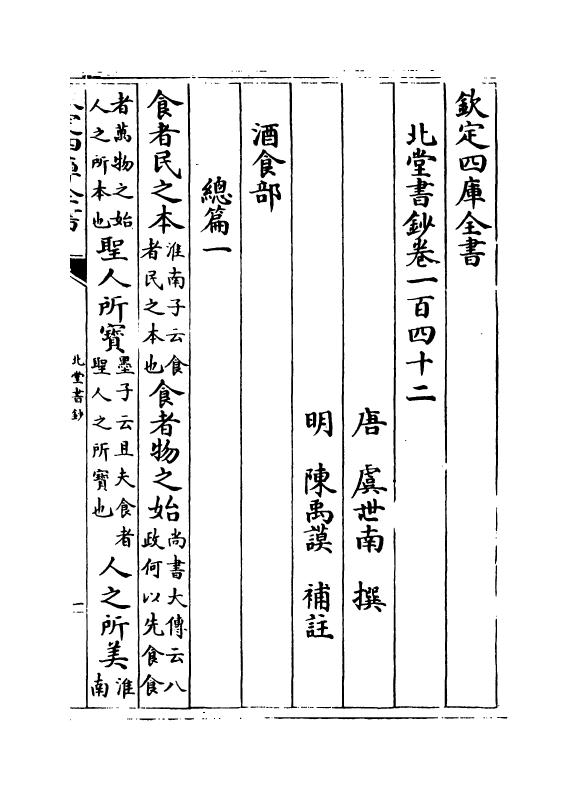 欽定四庫全書
北堂書鈔卷一百四十二
唐 虞世南 撰
明 陳禹謨 補註
酒食部
總篇一
食者民之本淮南子云食者民之本也食者物之始尚書大傳云八政何以先食食
者萬物之始人之所本也聖人所寳墨子云且夫食者聖人之所寳也人之所美淮南
北堂書鈔
一